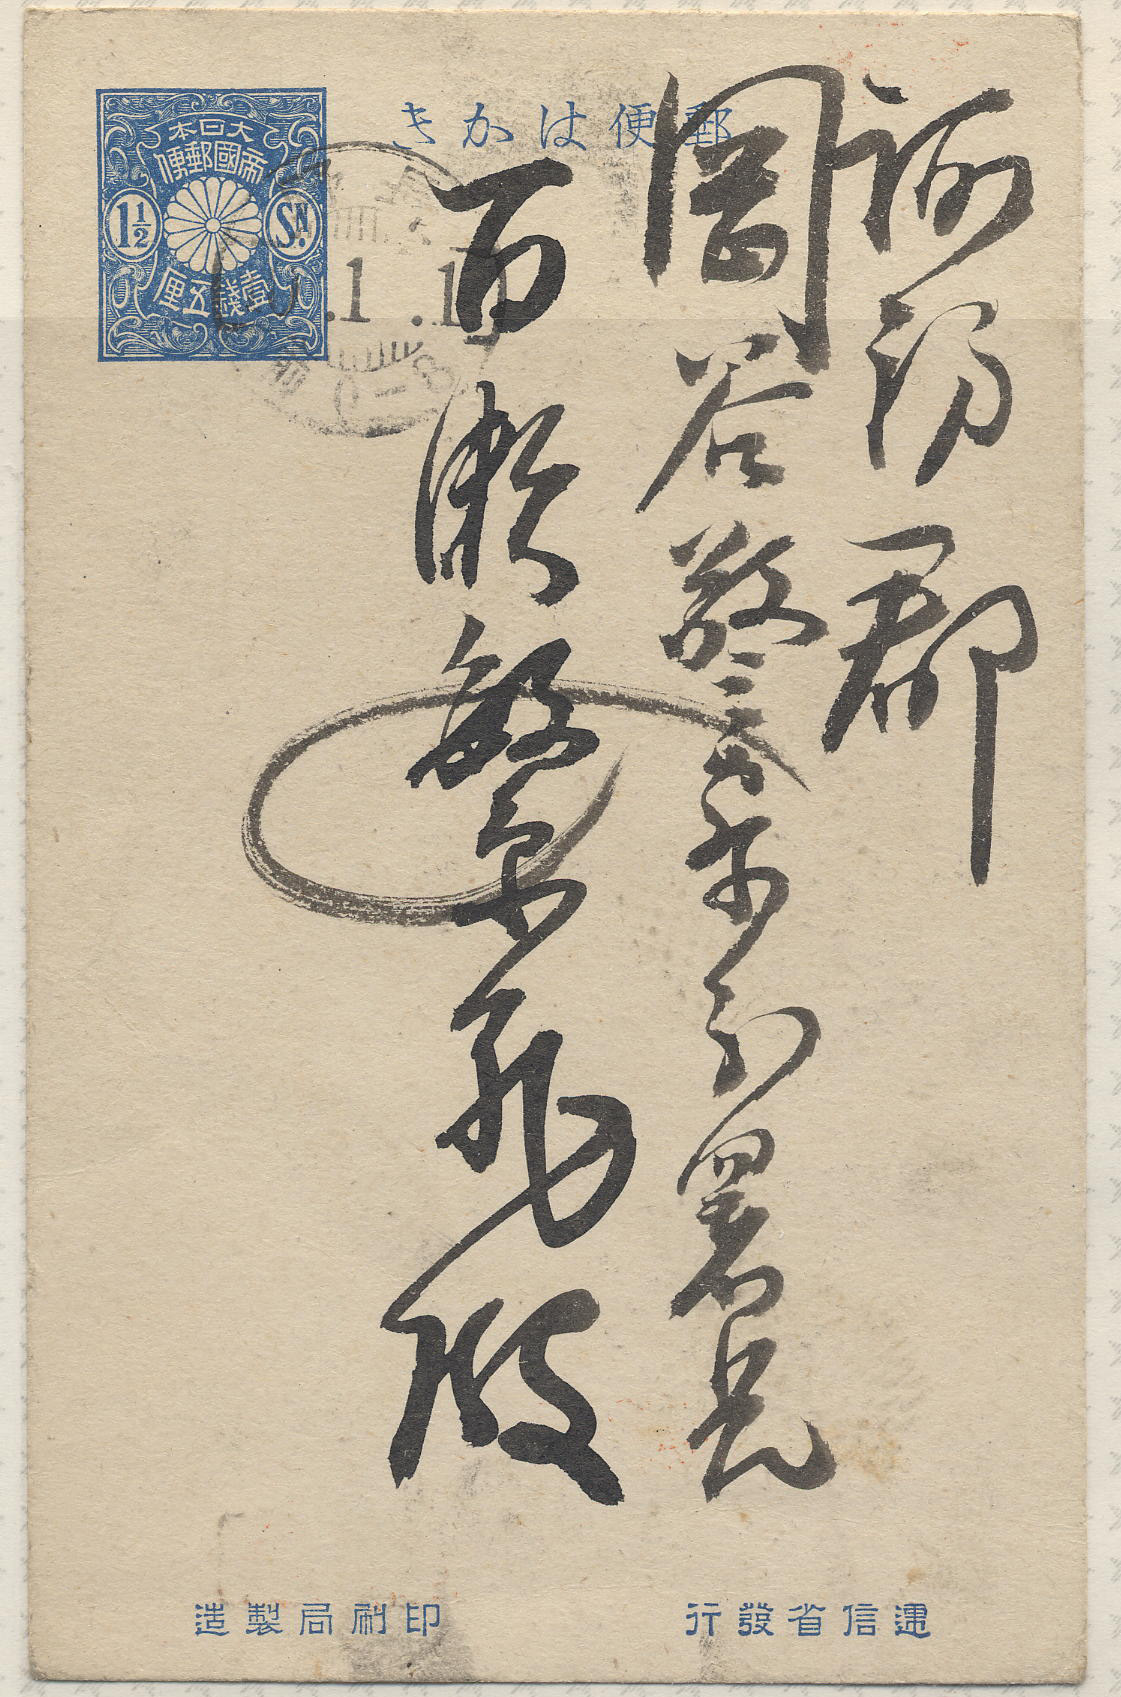 郵便はかき
大日本
帝國郵便
1½
SN.
壹錢五厘
0.1.1
0-8
諏訪郡
岡谷警察分署長
百瀬繁
殿
遞信省發行
印刷局製造